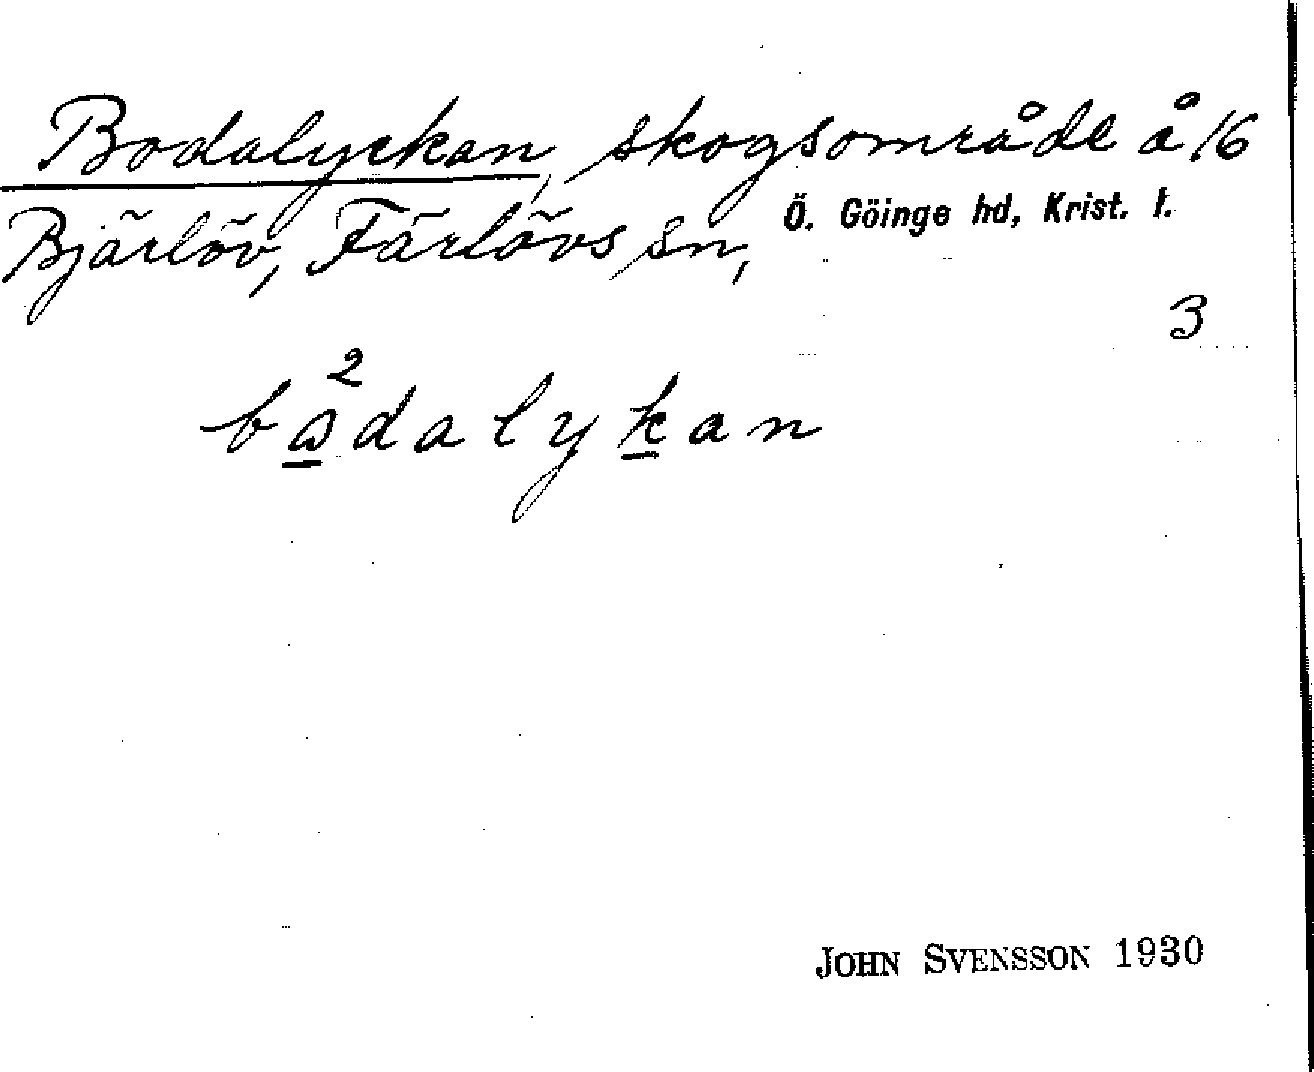 Bodalyckan, skogsområde å 16
Bjärlöv, Färlövs sn, Ö. Göinge hd, Krist. l.
3
2
dalykan
JOHN SVENSSON 1930